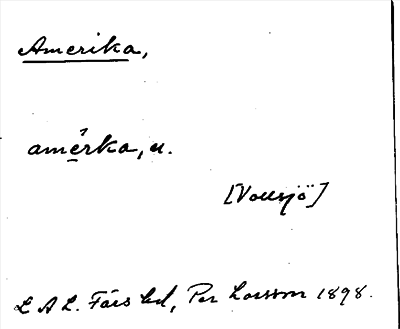 Amerika,
amérka, n.
[Vollsjö]
L A L. Färs hd, Per Larsson 1898.